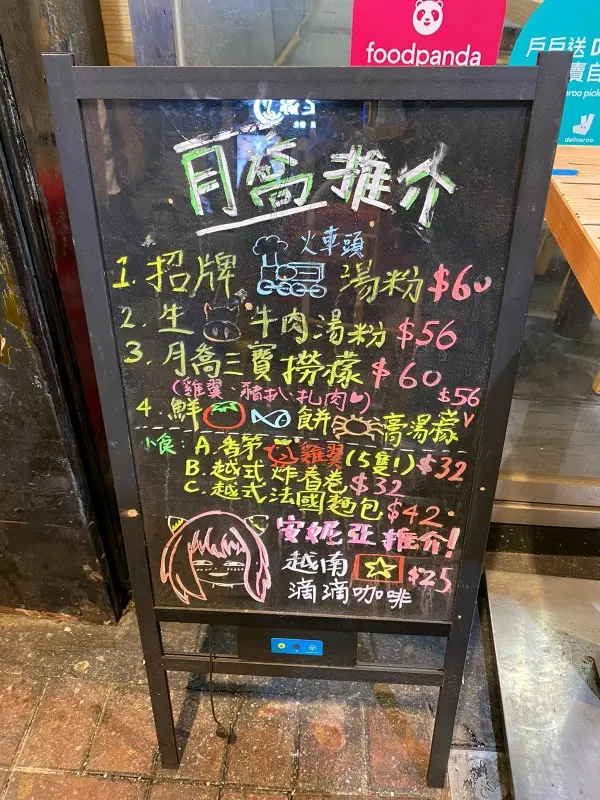 foodpanda
戶戶送
deliveroo
月喬推介
1. 招牌 火車頭 湯粉 $60
2. 生 牛肉湯粉 $56
3. 月喬三寶撈檬 $60
(雞翼、豬扒、扎肉♥)
4. 鮮 餅 高湯檬 $56
小食: A. 香茅 雞翼 (5隻!) $32
B. 越式炸春卷 $32
C. 越式法國麵包 $42
安妮亞推介!
越南 $25
滴滴咖啡